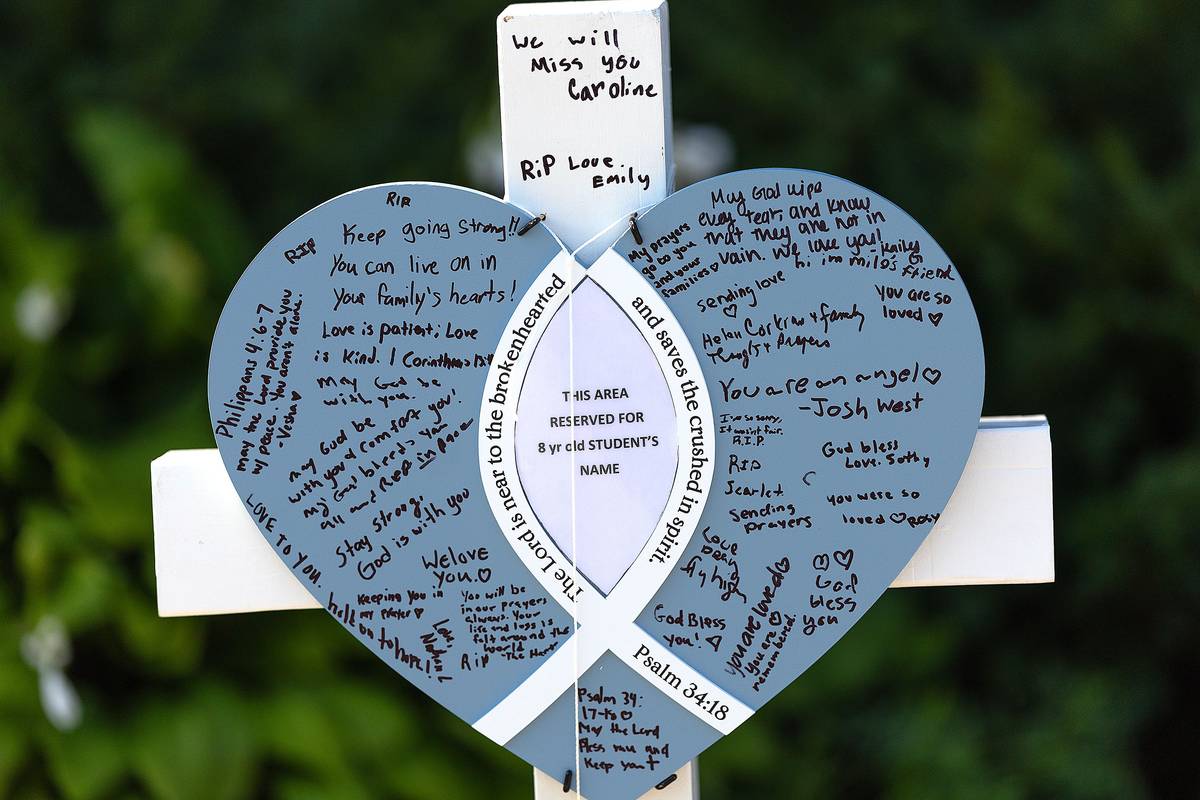 We will
Miss you
Caroline
RiP Love.
Emily
RIP
RIP
Keep going Strong!!
You can live on in
Your family's hearts!
Love is patient; Love
is kind. 1 Corinthians 13:4
may God be
with you.
may God be
with you & comfort you!
may God bless you
all and Rest in Peace
Stay strong,
God is with you
Philippians 4:6-7
may the Lord provide you
w/ peace. You aren't alone.
LOVE TO YOU.
We love
you.♡
Keeping you in
my prayer♡
hold on to hope!
Love
You will be
in our prayers
always. Your
life and loss is
felt around the
world
RIP -The Hart
The Lord is near to the brokenhearted
and saves the crushed in spirit.
Psalm 34:18
THIS AREA
RESERVED FOR
8 yr old STUDENT'S
NAME
May God wipe
every tear, and know
that they are not in
vain. We love you!
My prayers
go to you
and your
families♡
hi im milo's friend
sending love
♡
You are so
loved ♡
Helen Corkran & family
Thoughts & Prayers
You are an angel♡
-Josh West
I'm so sorry,
It wasn't fair.
R.I.P.
God bless
Love,
RIP
Scarlet
Sending
prayers
you were so
loved ♡
Love
♡♡
God
bless
you
you are loved♡
you are♡
remembered.
God Bless
you!♡
Psalm 34:
17-18♡
May the Lord
Bless you and
Keep you